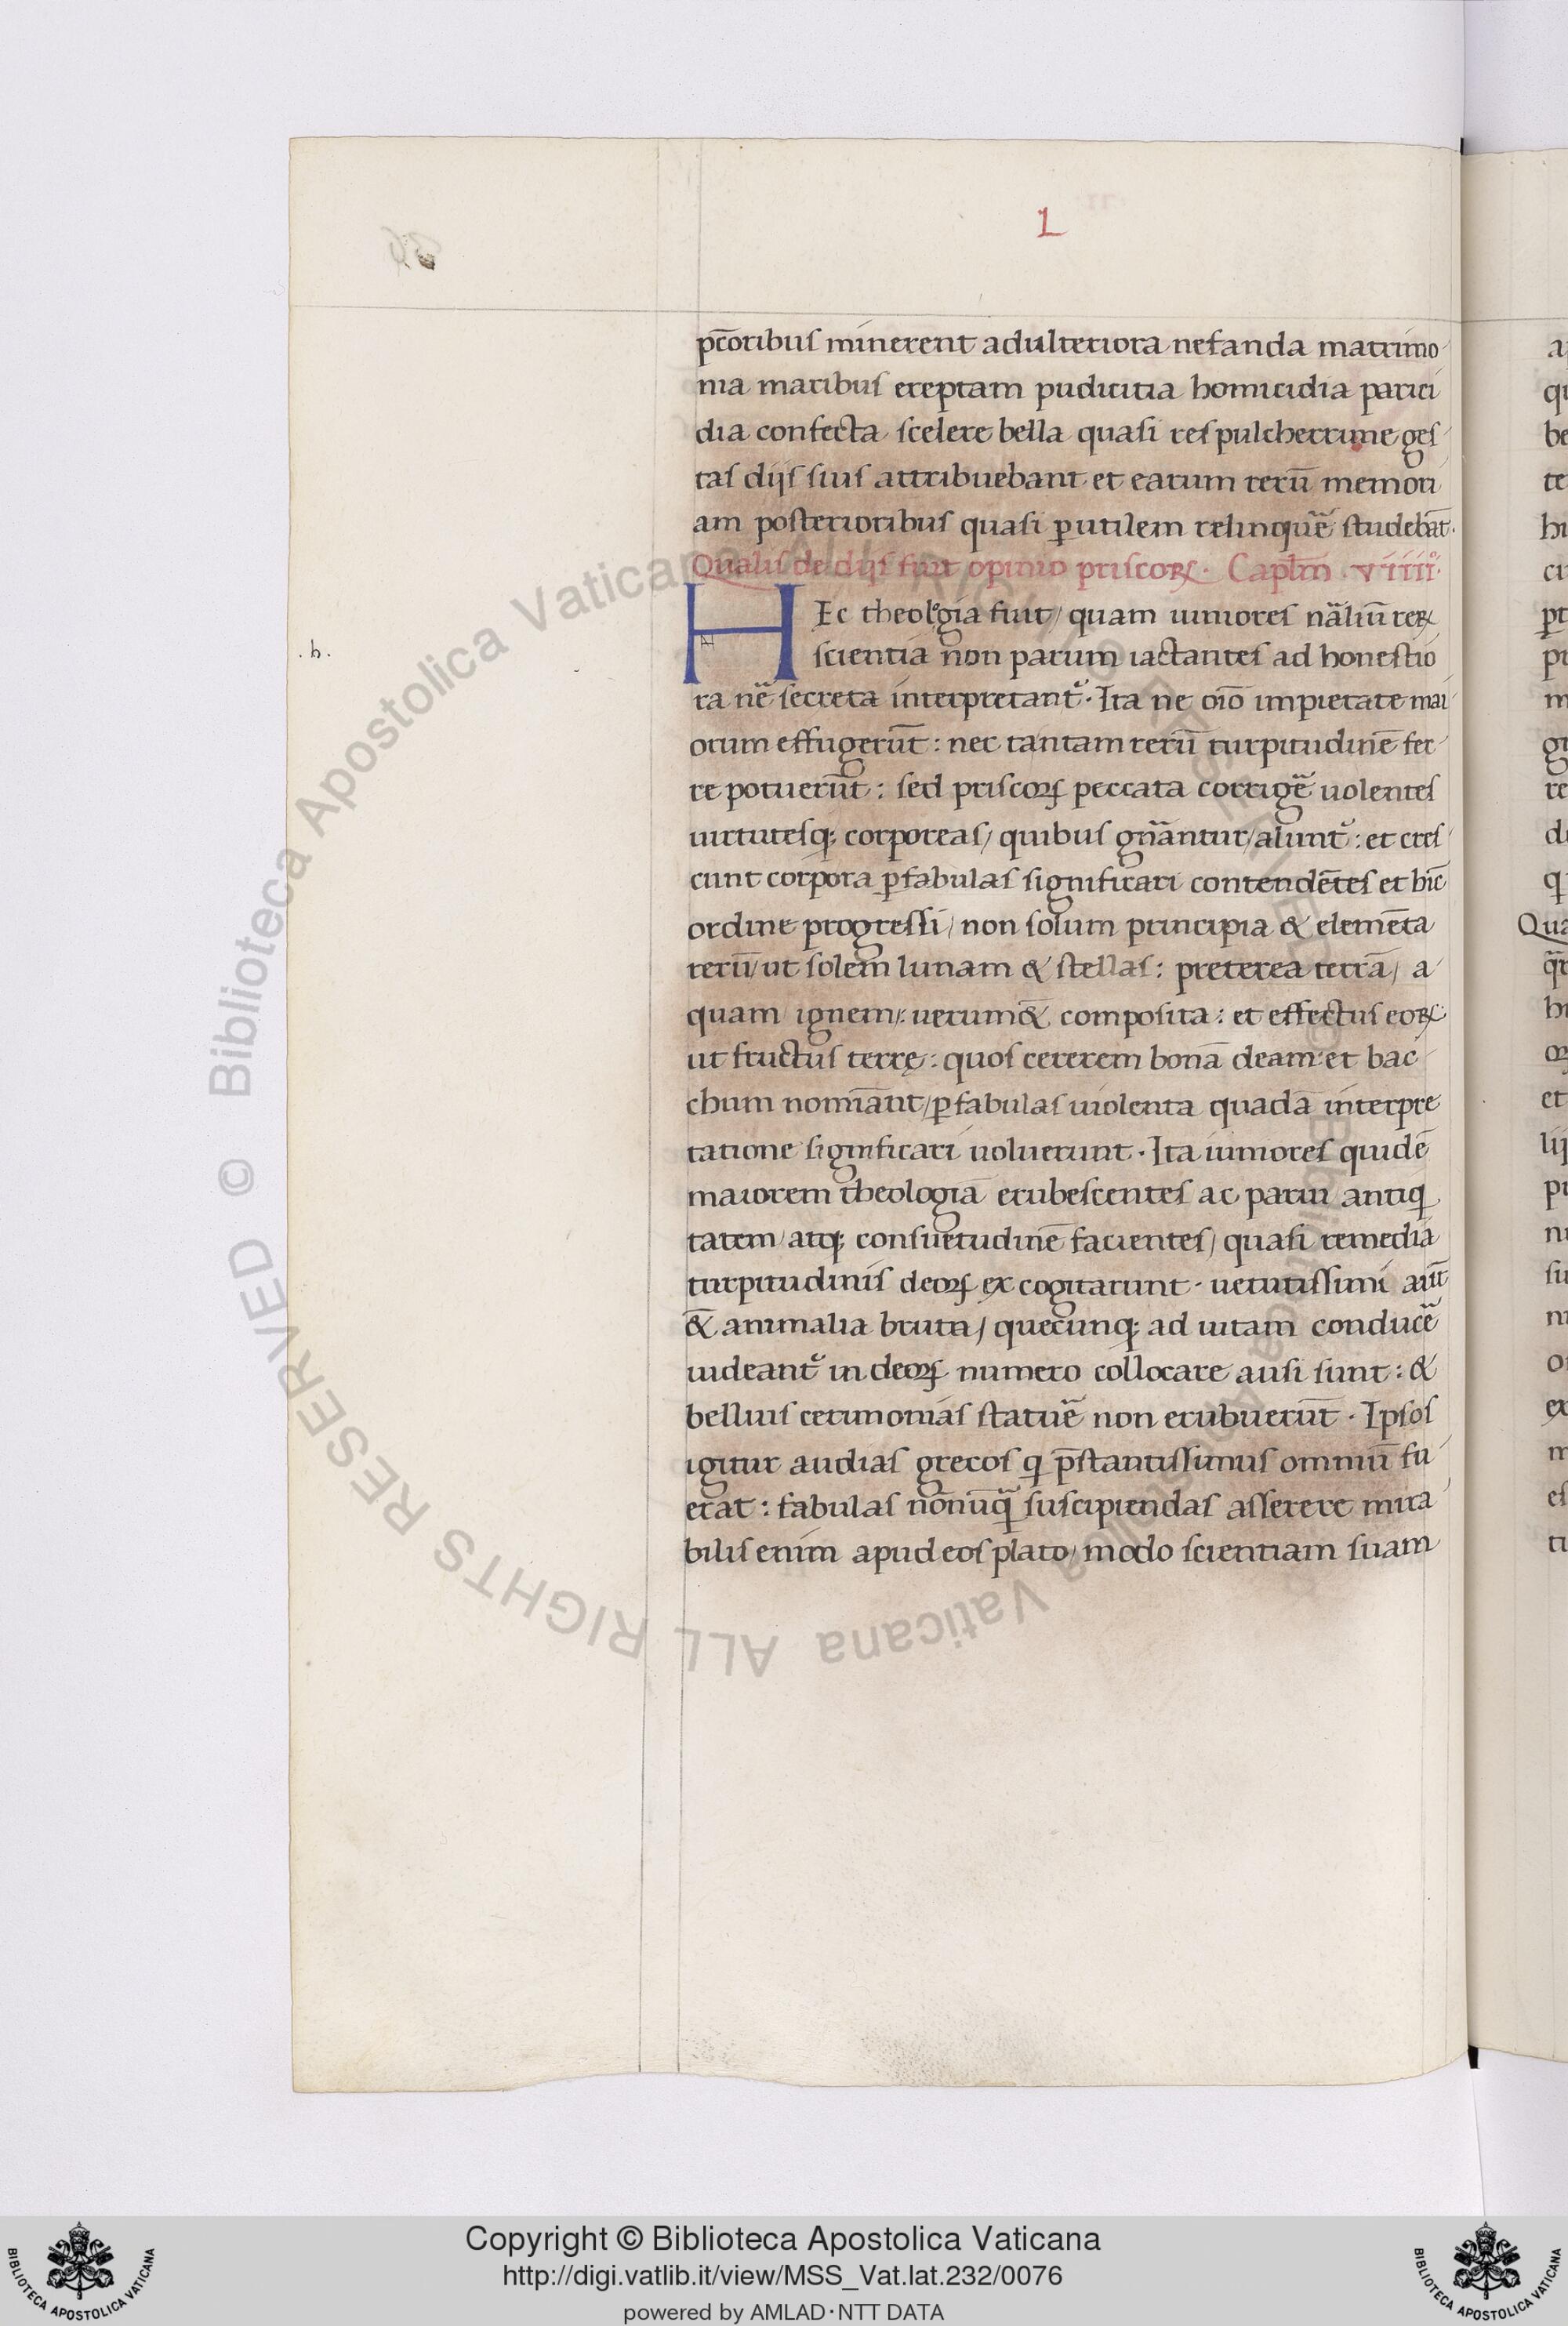 L
pc̄oribuſ minerent adulteriora nefanda matrimo
nia maribuſ ereptam pudicitia homicidia parici
dia confecta ſcelere bella quaſi reſ pulcherrime geſ
taſ dijſ ſuiſ attribuebant et earum rerū memori
am poſterioribuſ quaſi ꝑutilem relinquē ſtudebāt.
Qualiſ de dijſ fuit opinio priſcoꝝ. Capl̄m .viiii.
HEc theologia fuit/ quam iunioreſ nāliū reꝝ
.h.
ſcientia non parum iactanteſ ad honeſtio
ra nē ſecreta interpretant᷑. Ita ne oīo impietate mai
orum effugerūt: nec tantam rerū turpitudinē fer
re potuerūt: ſed priſcoꝝ peccata corrigē uolenteſ
uirtuteſq; corporeaſ/ quibuſ gn̄antur/ alunt᷑: et creſ
cunt corpora ꝑ fabulaſ ſignificari contendēteſ et hīc
ordine progreſſi/ non ſolum principia & elemēta
rerū/ ut ſolem lunam & ſtellaſ: preterea terrā/ a
quam ignem/: uerum &̄ compoſita: et effectuſ eoꝝ
ut fructuſ terrę: quoſ cererem bonā deam: et bac
chum nomīant/ ꝑ fabulaſ uiolenta quadā interpre
tatione ſignificari uoluerunt. Ita iunioreſ quidē
maiorem theologiā erubeſcenteſ ac parui antiq
tatem/ atq; conſuetudinē facienteſ/ quaſi remedia
turpitudiniſ deoꝝ ex cogitarunt. uetutiſſimi aūt
&̄ animalia bruta/ quecunq; ad uitam conducē
uideant᷑ in deoꝝ numero collocare auſi ſunt: &
belluiſ cerimoniaſ ſtatuē non erubuerūt. Ipſoſ
igitur audiaſ grecoſ q p̄ſtantiſſimuſ omniū fu
erat: fabulaſ nōnūq̄ ſuſcipiendaſ aſſerere mira
biliſ enim apud eoſ plato/ modo ſcientiam ſuam
© Biblioteca Apostolica Vaticana ALL RIGHTS RESERVED © Biblioteca Apostolica Vaticana ALL RIGHTS RESERVED
Copyright © Biblioteca Apostolica Vaticana
http://digi.vatlib.it/view/MSS_Vat.lat.232/0076
powered by AMLAD·NTT DATA
BIBLIOTECA APOSTOLICA VATICANA
BIBLIOTECA APOSTOLICA VATICANA